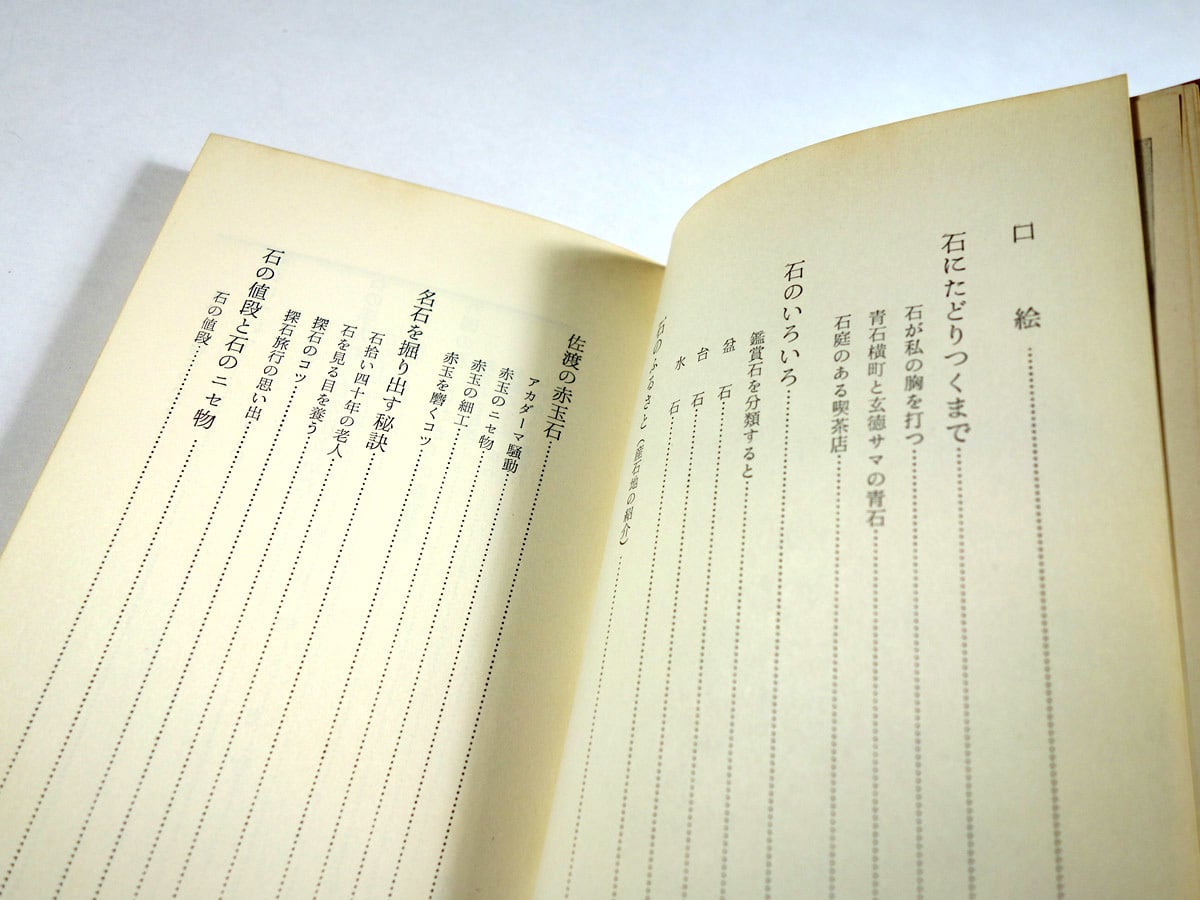 口絵
石にたどりつくまで
石が私の胸を打つ
青石横町と玄徳サマの青石
石庭のある喫茶店
石のいろいろ
鑑賞石を分類すると
盆石
台石
水石
石のふるさと（産石地の紹介）
佐渡の赤玉石
アカダーマ騒動
赤玉のニセ物
赤玉の細工
赤玉を磨くコツ
名石を掘り出す秘訣
石拾い四十年の老人
石を見る目を養う
探石のコツ
探石旅行の思い出
石の値段と石のニセ物
石の値段